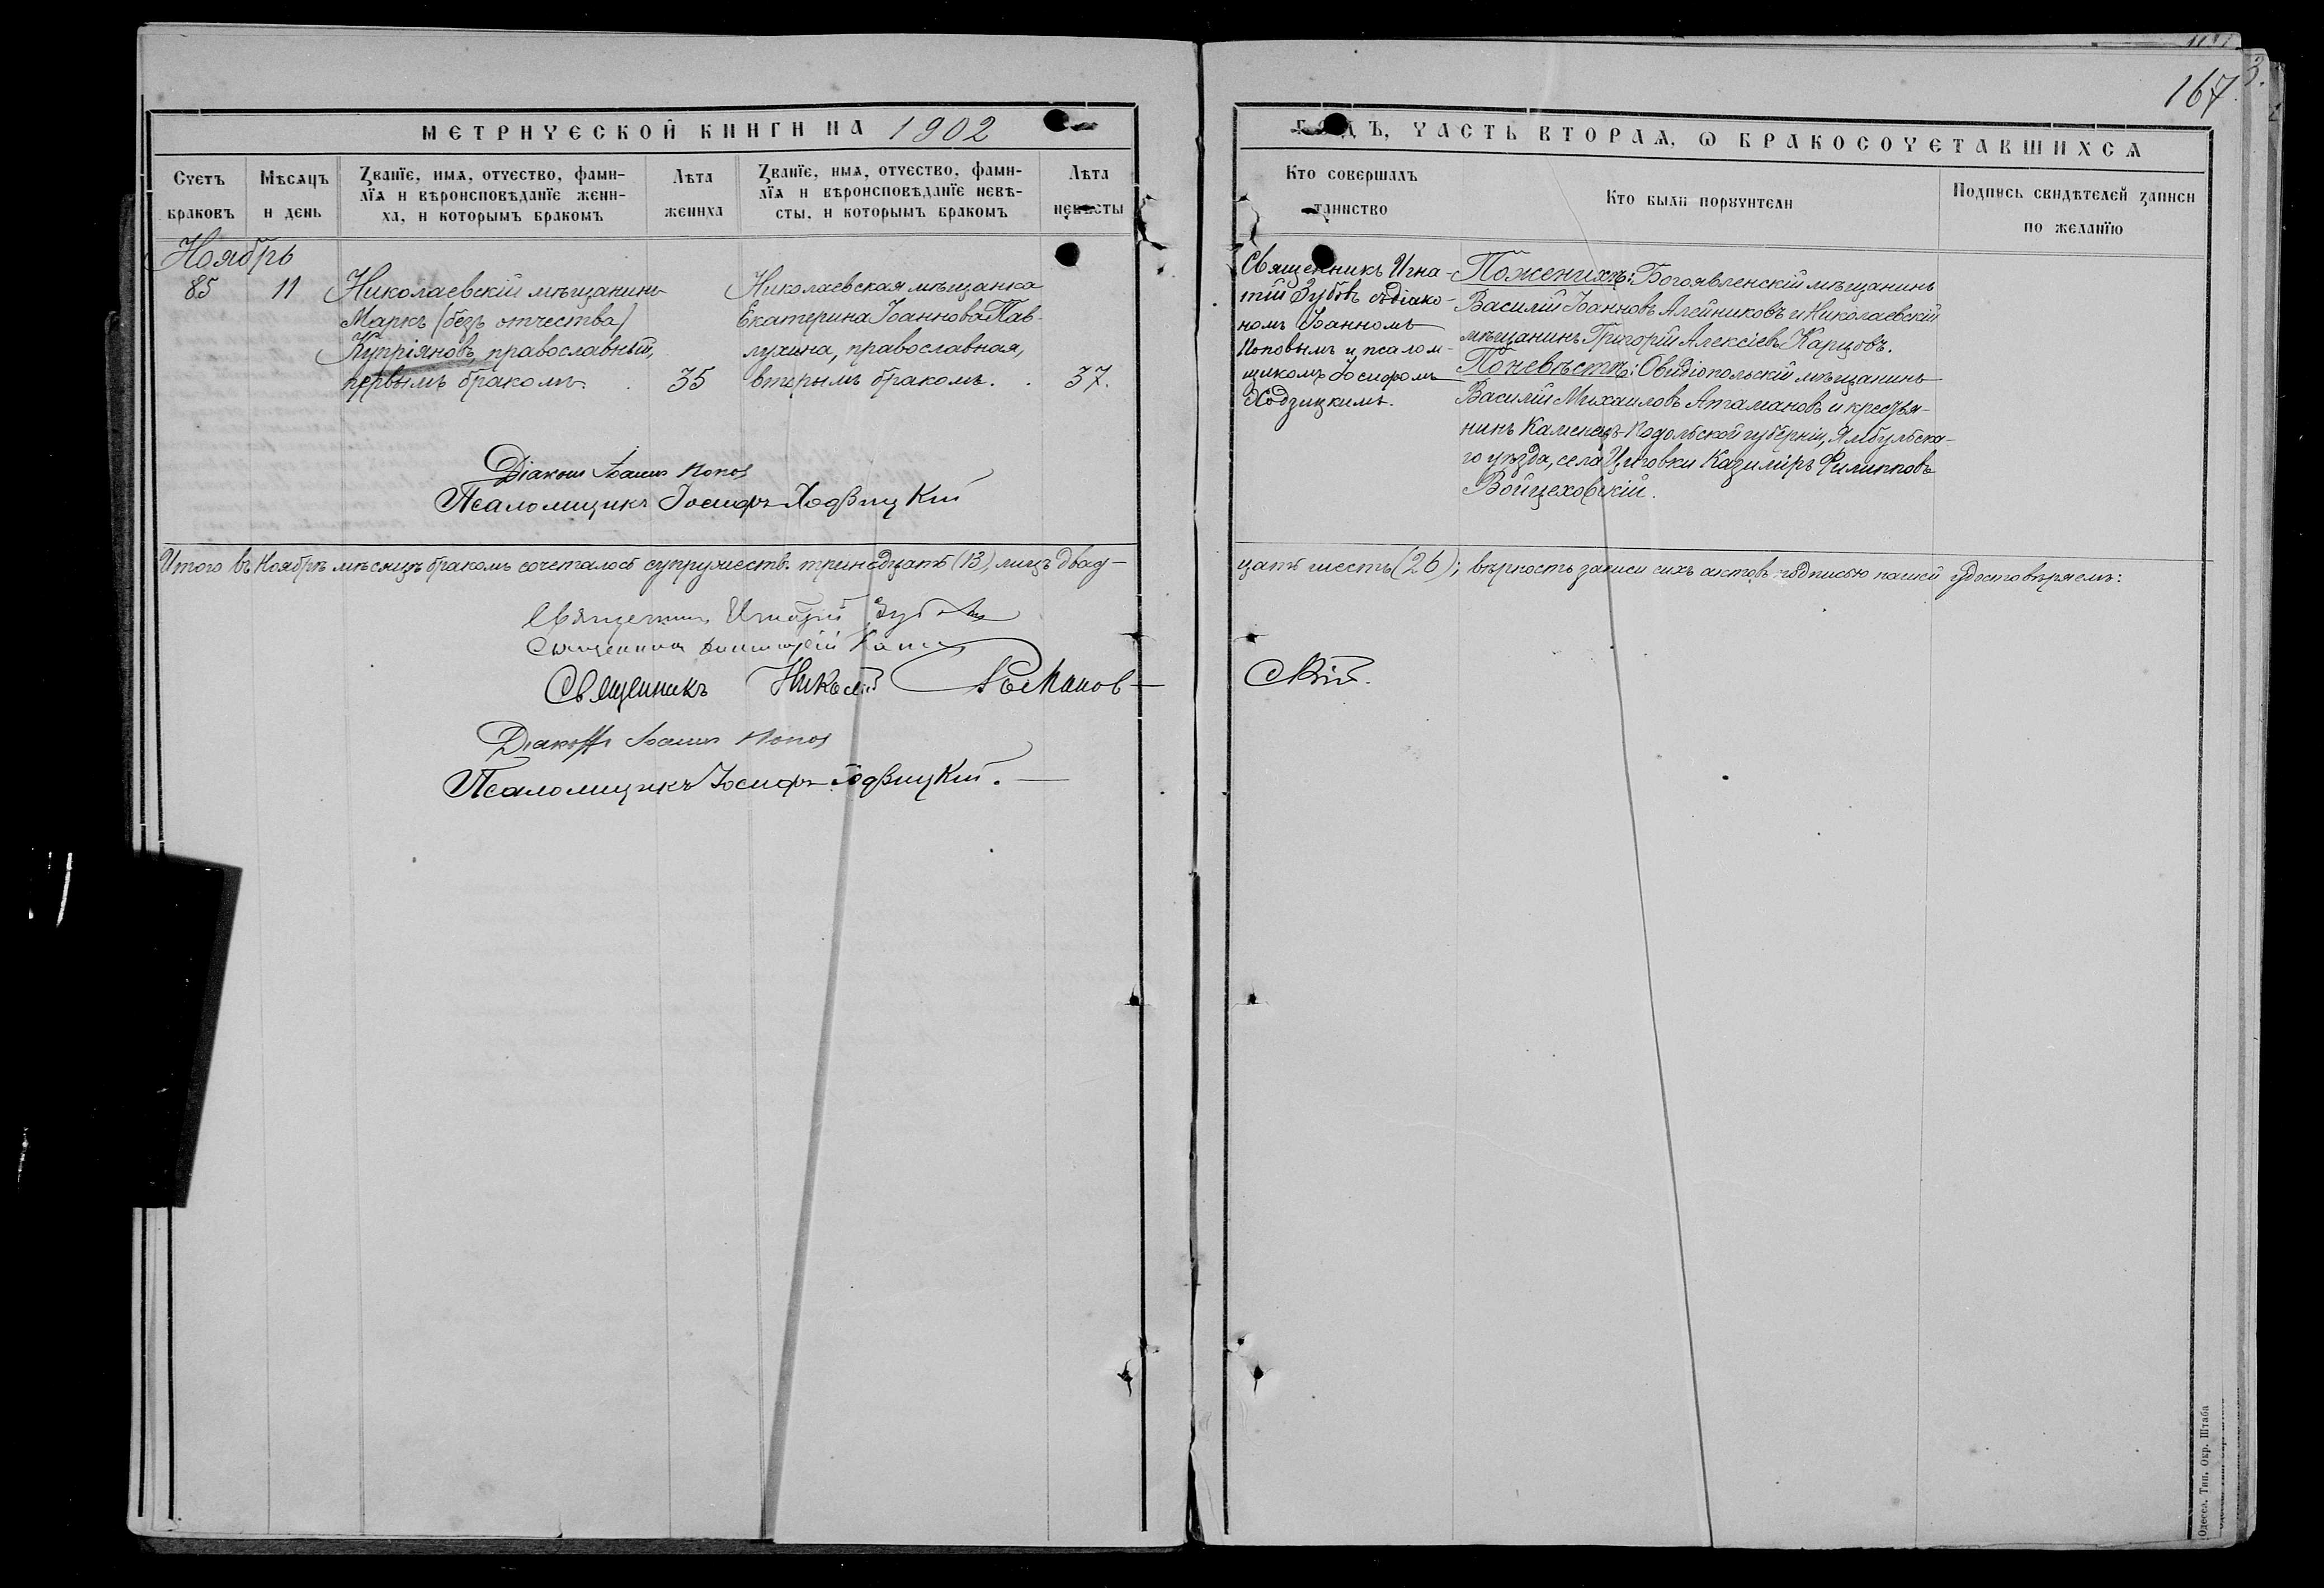 167.
3.
МЕТРИЧЕСКОЙ КНИГИ НА 1902
ГОДЪ, ЧАСТЬ ВТОРАѦ, Ѡ БРАКОСОЧЕТАВШИХСѦ
Счетъ браковъ
Мѣсѧцъ и день
Званїе, имѧ, отчество, фами-
лїѧ и вѣроисповѣданїе жени-
ха, и которымъ бракомъ
Лѣта жениха
Званїе, имѧ, отчество, фами-
лїѧ и вѣроисповѣданїе невѣ-
сты, и которымъ бракомъ
Лѣта невѣсты
Кто совершалъ таинство
Кто были порꙋчители
Подпись свидѣтелей записи
по желанїю
Ноябрь
85
11
Николаевскій мѣщанинъ
Маркъ (безъ отчества)
Купріяновъ, православный,
первымъ бракомъ.
35
Николаевская мѣщанка
Екатерина Іоаннова Пав-
лухина, православная,
вторымъ бракомъ.
37.
Священникъ Игна-
тій Зубовъ съ діако-
номъ Іоанномъ
Поповымъ и псалом-
щикомъ Іосифомъ
Ходзицкимъ.
По женихѣ: Богоявленскій мѣщанинъ
Василій Іоанновъ Алейниковъ и Николаевскій
мѣщанинъ Григорій Алексіевъ Карцовъ.
По невѣстѣ: Овидіопольскій мѣщанинъ
Василій Михаиловъ Атамановъ и крестья-
нинъ Каменецъ-Подольской губерніи, Ямбульска-
го уѣзда, села Казиміръ Филипповъ
Войцеховскій.
Діаконъ Іоаннъ Попов
Псаломщикъ Іосифъ Ходзицкій
Итого въ Ноябрѣ мѣсяцѣ бракомъ сочеталось супружеств. тринадцать (13) лицъ двад-
цать шесть (26); вѣрность записи сихъ актовъ подписью нашей удостовѣряемъ:
Священникъ Игнатій Зубовъ
Священникъ
Священникъ Николай Романов-
скій.
Діаконъ Іоаннъ Попов
Псаломщикъ Іосифъ Ходзицкій.
Одесса. Тип. Окр. Штаба